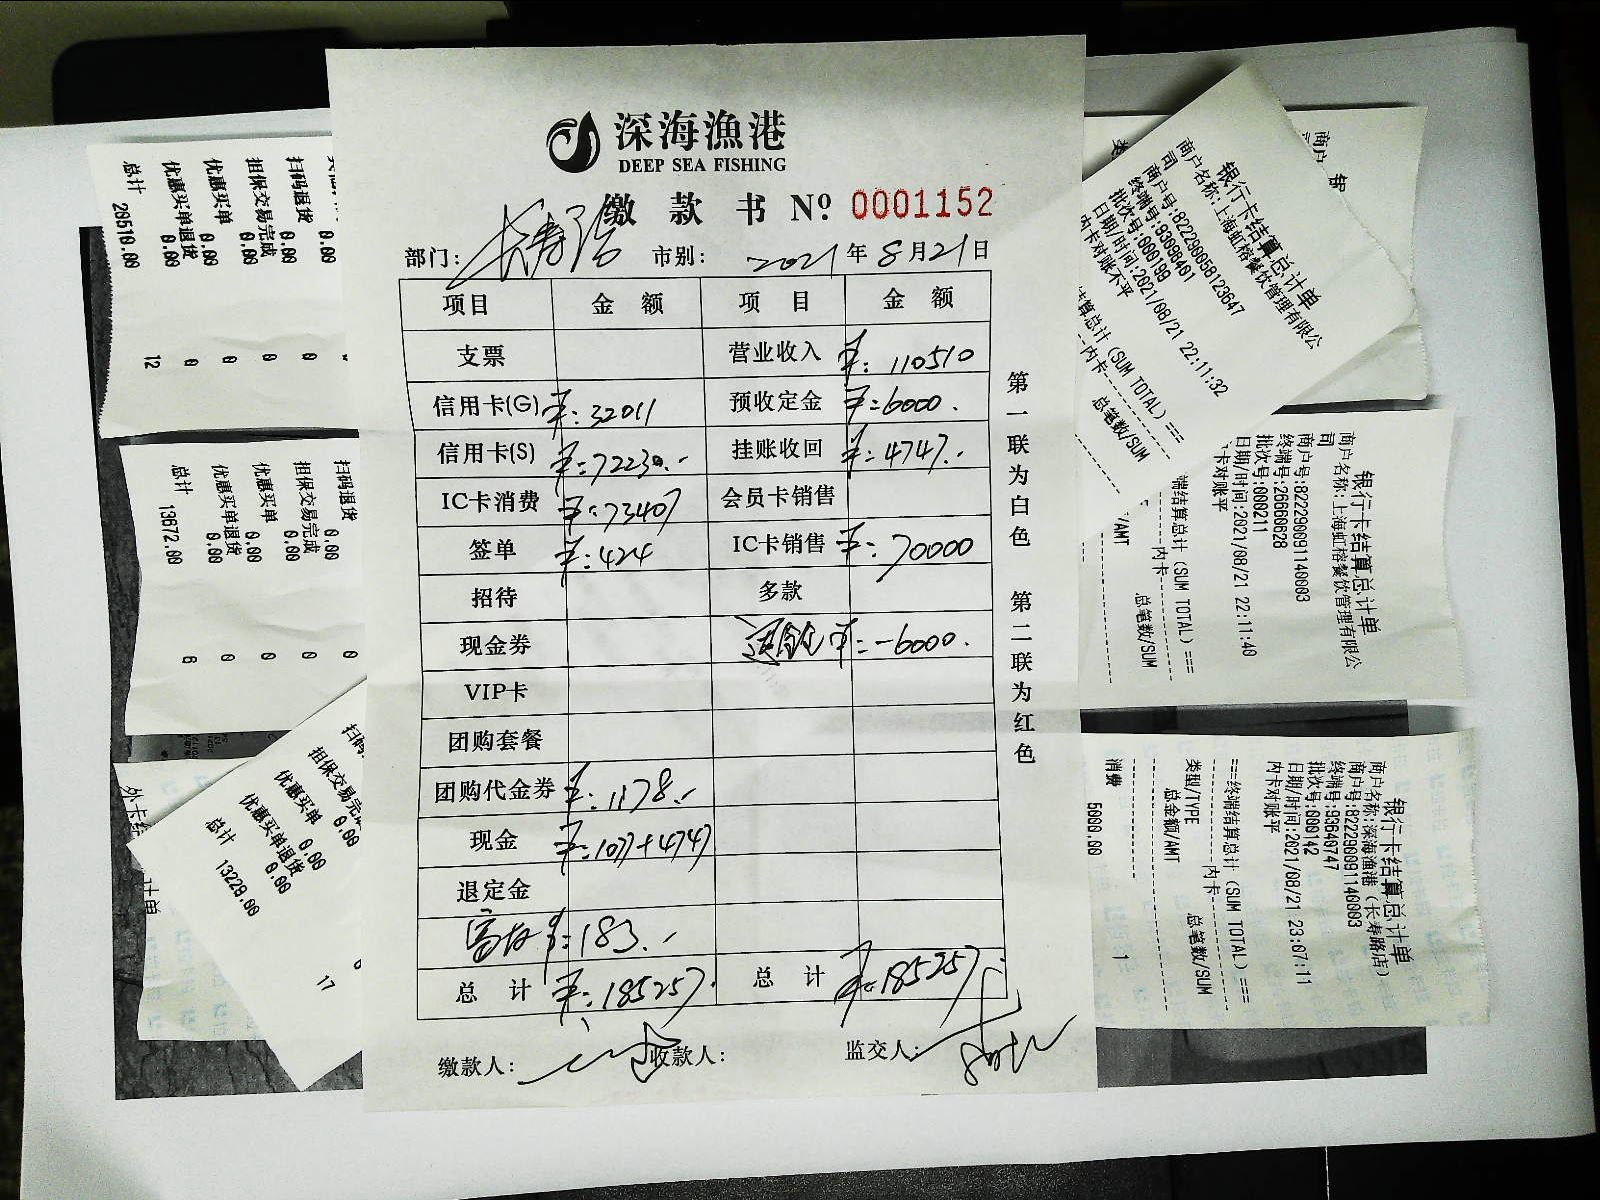 深海漁港
DEEP SEA FISHING
缴 款 书 Nº 0001152
部门: 长寿路 市别: 2021年8月21日
项目 金 额 项 目 金 额
支票 营业收入 ¥: 110510
信用卡(G) ¥: 32011 预收定金 ¥: 6000.
信用卡(S) ¥: 72230.- 挂账收回 ¥: 4747.-
IC卡消费 ¥: 73407 会员卡销售
签单 ¥: 424 IC卡销售 ¥: 70000
招待 多款
现金券 ¥: -6000.
VIP卡
团购套餐
团购代金券 ¥: 1178.-
现金 ¥: 1077+4747
退定金
¥: 183.-
总 计 ¥: 185257. 总 计 ¥: 185257.
缴款人: 收款人: 监交人:
第一联为白色 第二联为红色
扫码退货 0.00 0
担保交易完成 0.00 0
优惠买单 0.00 0
优惠买单退货 0.00 0
总计 20510.00 12
扫码退货 0.00 0
担保交易完成 0.00 0
优惠买单 0.00 0
优惠买单退货 0.00 0
总计 13672.00 6
扫码
担保交易完 0.00
优惠买单 0.00
优惠买单退货 0.00
总计 13229.00 17
计单
商户
银行卡结算总计单
商户名称:上海虹榕餐饮管理有限公
司
商户号:822290058123647
终端号:93098401
批次号:000199
日期/时间:2021/08/21 22:11:32
内卡对账不平
结算总计 (SUM TOTAL) ===
内卡
总笔数/SUM
银行卡结算总计单
商户名称:上海虹榕餐饮管理有限公
司
商户号:822290091140003
终端号:26660628
批次号:000211
日期/时间:2021/08/21 22:11:40
卡对账平
端结算总计 (SUM TOTAL) ===
内卡
/AMT 总笔数/SUM
银行卡结算总计单
商户名称:深海渔港 (长寿路店)
商户号:822290091140003
终端号:93640747
批次号:000142
日期/时间:2021/08/21 23:07:11
内卡对账平
===终端结算总计 (SUM TOTAL) ===
内卡
类型/TYPE 总笔数/SUM
总金额/AMT
消费 1
5000.00